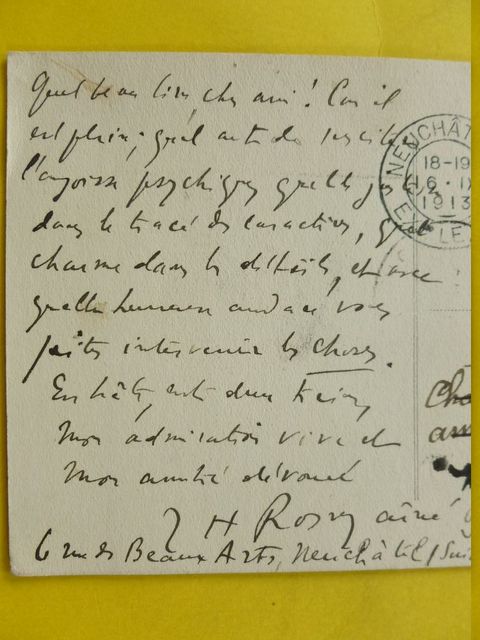 Quel beau livre cher ami ! Com il
est plein ; quel art de susciter
l'angoisse psychique quelle justesse
dans le tracé des caractères, quel
charme dans les détails, et avec
quelle heureuse audace vous
faites intervenir les choses.
En hâte, entre deux trains,
Mon admiration vive et
Mon amitié dévouée
J H Rosny aîné
6 rue des Beaux Arts, Neuchâtel (Sui
NEUCHÂT
18-19
6·IX
1913
EXP. LE